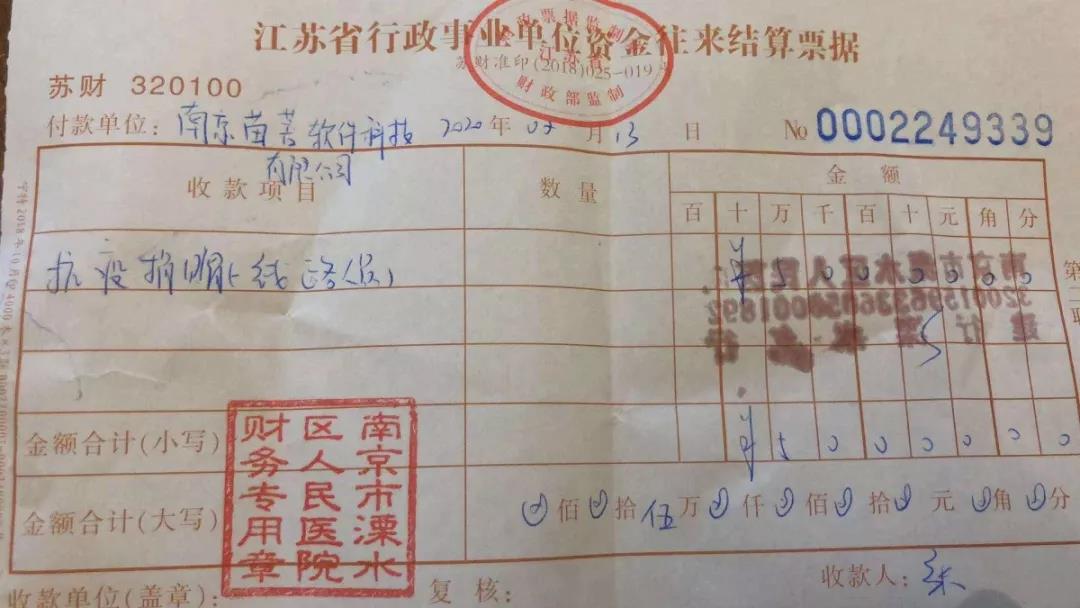 江苏省行政事业单位资金往来结算票据
财政票据监制
江苏省
苏财准印(2018)025-019号
财政部监制
苏财 320100
付款单位: 南京苗 软件科技 2020年02月13日 № 0002249339
有限公司
收款项目 数量 金额
百 十 万 千 百 十 元 角 分
抗疫捐 (一线 ) ¥ 5 0 0 0 0 0 0
金额合计(小写) ¥ 5 0 0 0 0 0 0
金额合计(大写) 佰 拾 伍万 仟 佰 拾 元 角 分
南京市溧水
区人民医院
财务专用章
收款单位(盖章): 复核: 收款人: 朱
第二联